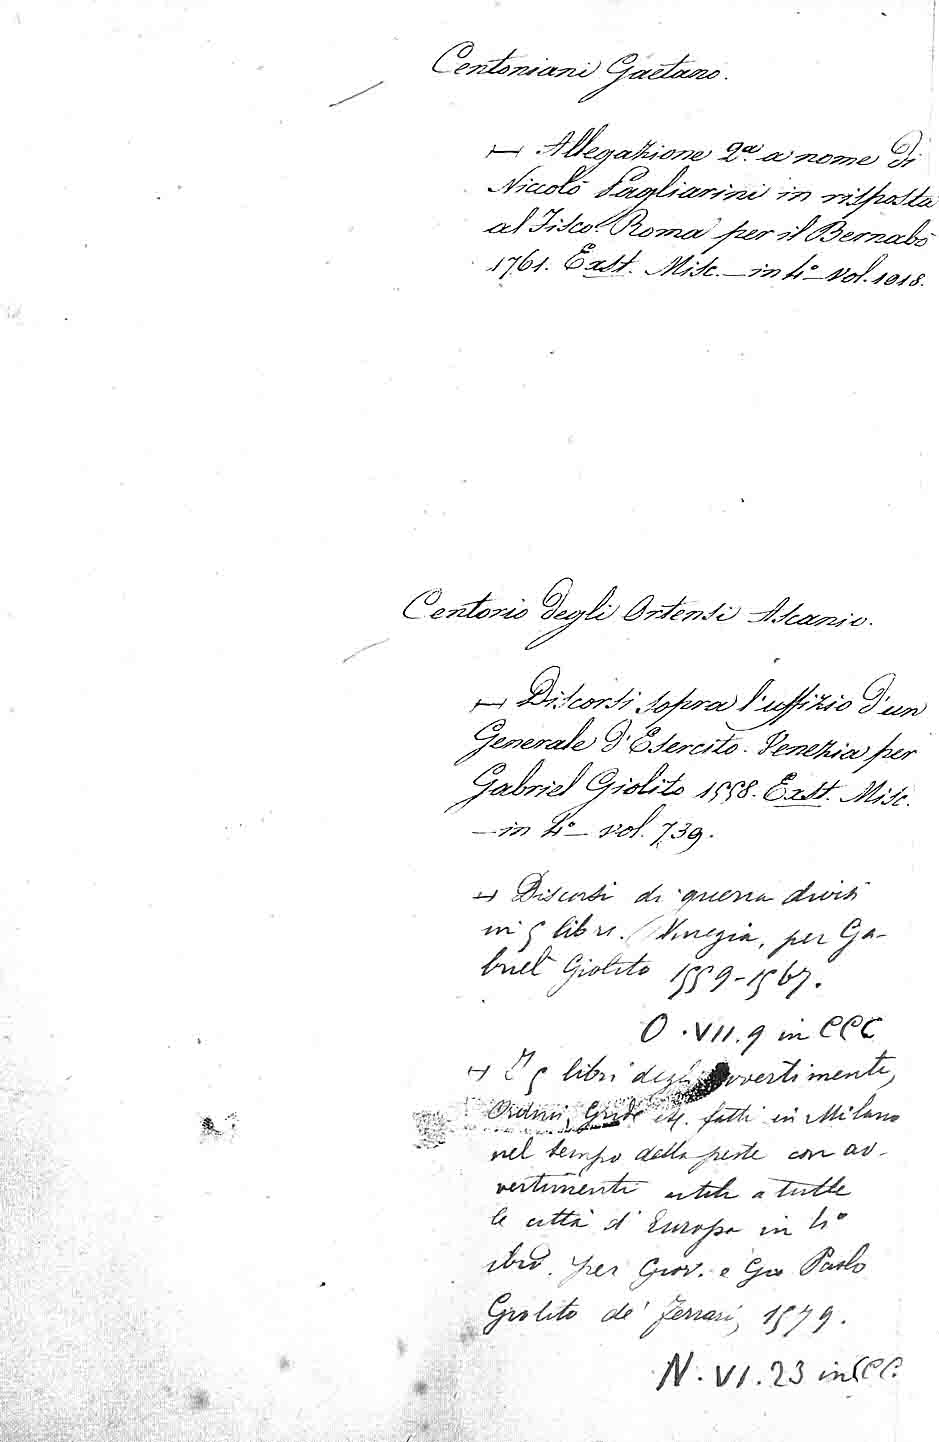 Centoniani Gaetano.
⊢ Allegazione 2ª a nome di
Niccolò Pagliarini in risposta
al Fisco. Roma per il Bernabò
1761. Exst. Misc. – in 4° – vol. 1018.
Centorio degli Ortensi Ascanio.
⊢ Discorsi sopra l'uffizio d'un
Generale d'Esercito. Venezia per
Gabriel Giolito 1558. Exst. Misc.
– in 4° – vol. 739.
⊢ Discorsi di guerra divisi
in 5 libri. Venezia, per Ga-
briel Giolito 1559-1567.
O. VII. 9 in CCC
⊢ I 5 libri degli avvertimenti,
Ordini, Gride ec. fatti in Milano
nel tempo della peste con av-
vertimenti utili a tutte
le città d'Europa in 4°
ibid. per Giov. e Gio Paolo
Giolito de' Ferrari, 1579.
N. VI. 23 in CCC.